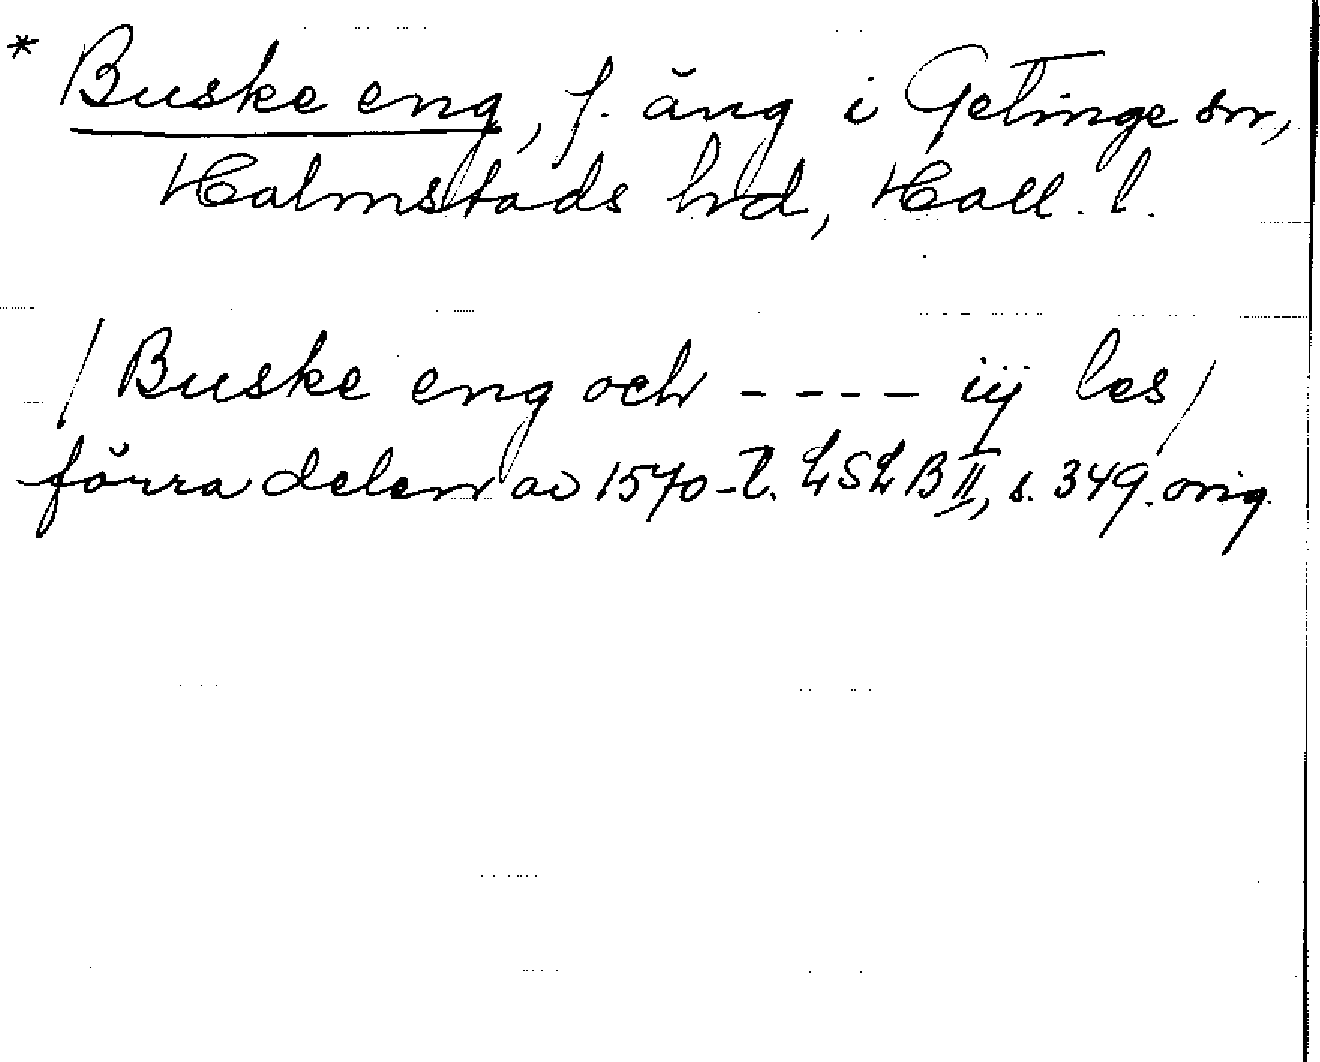 * Buske eng, f. äng i Getinge sn,
Halmstads hd, Hall. l.
/Buske eng och - - - - iij les/
förra delen av 1570-t. LSLB II, s. 349. orig.